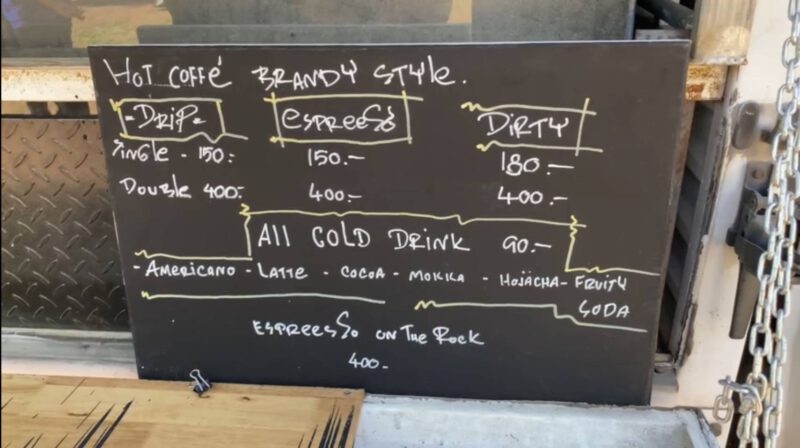 HOT COFFé BRANDY STYLE.
-DRIP- ESPREESSO DIRTY
SINGLE - 150:- 150.- 180.-
DOUBLE 400:- 400.- 400.-
All COLD DRINK 90.-
- AMERICANO - LATTE - COCOA - MOKKA - HOJACHA - FRUITY
SODA
ESPREESSO ON THE ROCK
400-